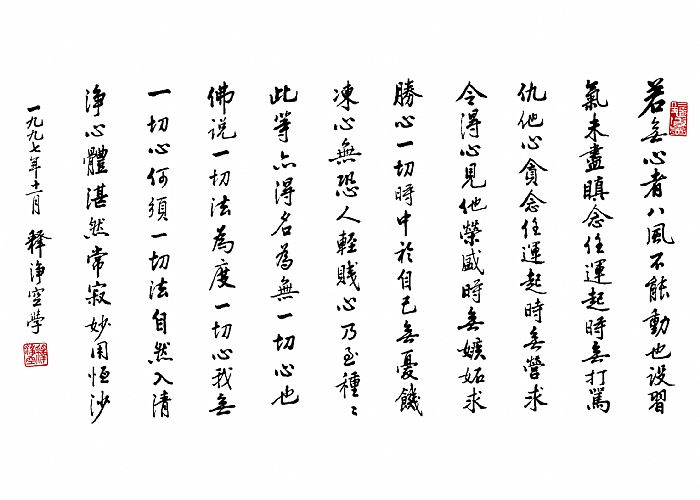 若无心者八風不能動也设習
氣未盡瞋念任運起時无打罵
仇他心貪念任運起時无營求
令得心見他榮盛時无嫉妬求
勝心一切時中於自己无憂饑
凍心無恐人輕賤心乃至種種
此等亦得名為無一切心也
佛说一切法為度一切心我无
一切心何須一切法自然入清
淨心體湛然常寂妙用恒沙
一九九七年十一月 释净空学